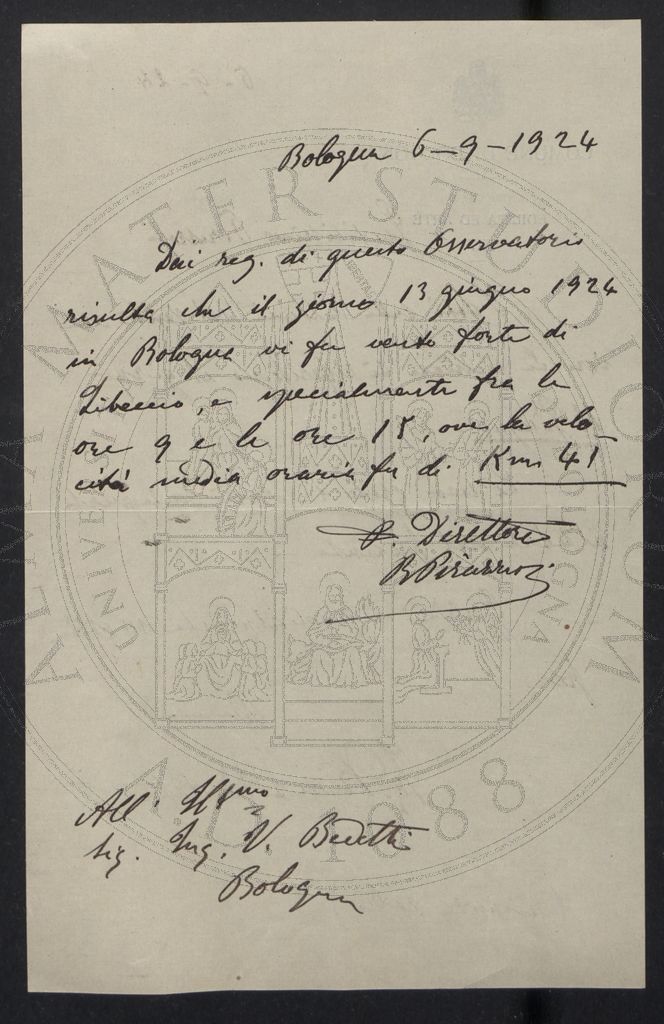 Bologna 6-9-1924
Dai reg. di questo Osservatorio
risulta che il giorno 13 giugno 1924
in Bologna vi fu vento forte di
Libeccio, e specialmente fra le
ore 9 e le ore 15, ove la velo-
cità media oraria fu di Km 41
p. Direttore
All' Ill.mo
Sig. Ing. V.
Bologna
ALMA MATER STUDIORUM
UNIVERSITÀ DI BOLOGNA
A.D. 1088